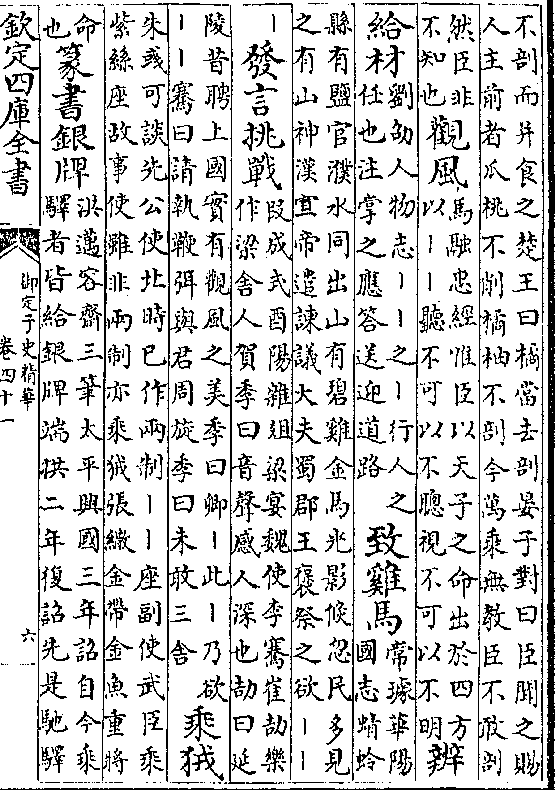 不剖而并食之楚王曰橘當去剖晏子對曰臣聞之賜
人主前者瓜桃不削橘柚不剖今萬乘無教臣不敢剖
然臣非
不知也
觀風
馬融忠經惟臣以天子之命出於四方
以丨丨聽不可以不聰視不可以不明
辨
給材
劉劭人物志丨丨之丨行人之
任也注掌之應答送迎道路
致雞馬
常璩華陽
國志蜻蛉
縣有鹽官濮水同出山有碧雞金馬光影倏忽民多見
之有山神漢宣帝遣諫議大夫蜀郡王褒祭之欲丨丨
丨
發言挑戰
段成式酉陽雜俎梁宴魏使李騫崔劼樂
作梁舍人賀季曰音聲感人深也劼曰延
陵昔聘上國實有觀風之美季曰卿丨此丨乃欲
丨丨騫曰請執鞭弭與君周旋季曰未敢三舍
乘狨
朱彧可談先公使北時已作兩制丨丨座副使武臣乘
紫絲座故事使雖非兩制亦乘狨張繖金帶金魚重將
命
也
篆書銀牌
洪邁容齋三筆太平興國三年詔自今乘
驛者皆給銀牌端拱二年復詔先是馳驛
欽定四庫全書
御定子史精華
卷四十一
六